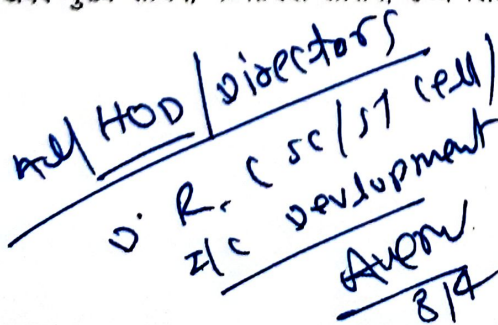 All HOD/Directors
D.R. (SC/ST Cell)
I/C Development
8/4